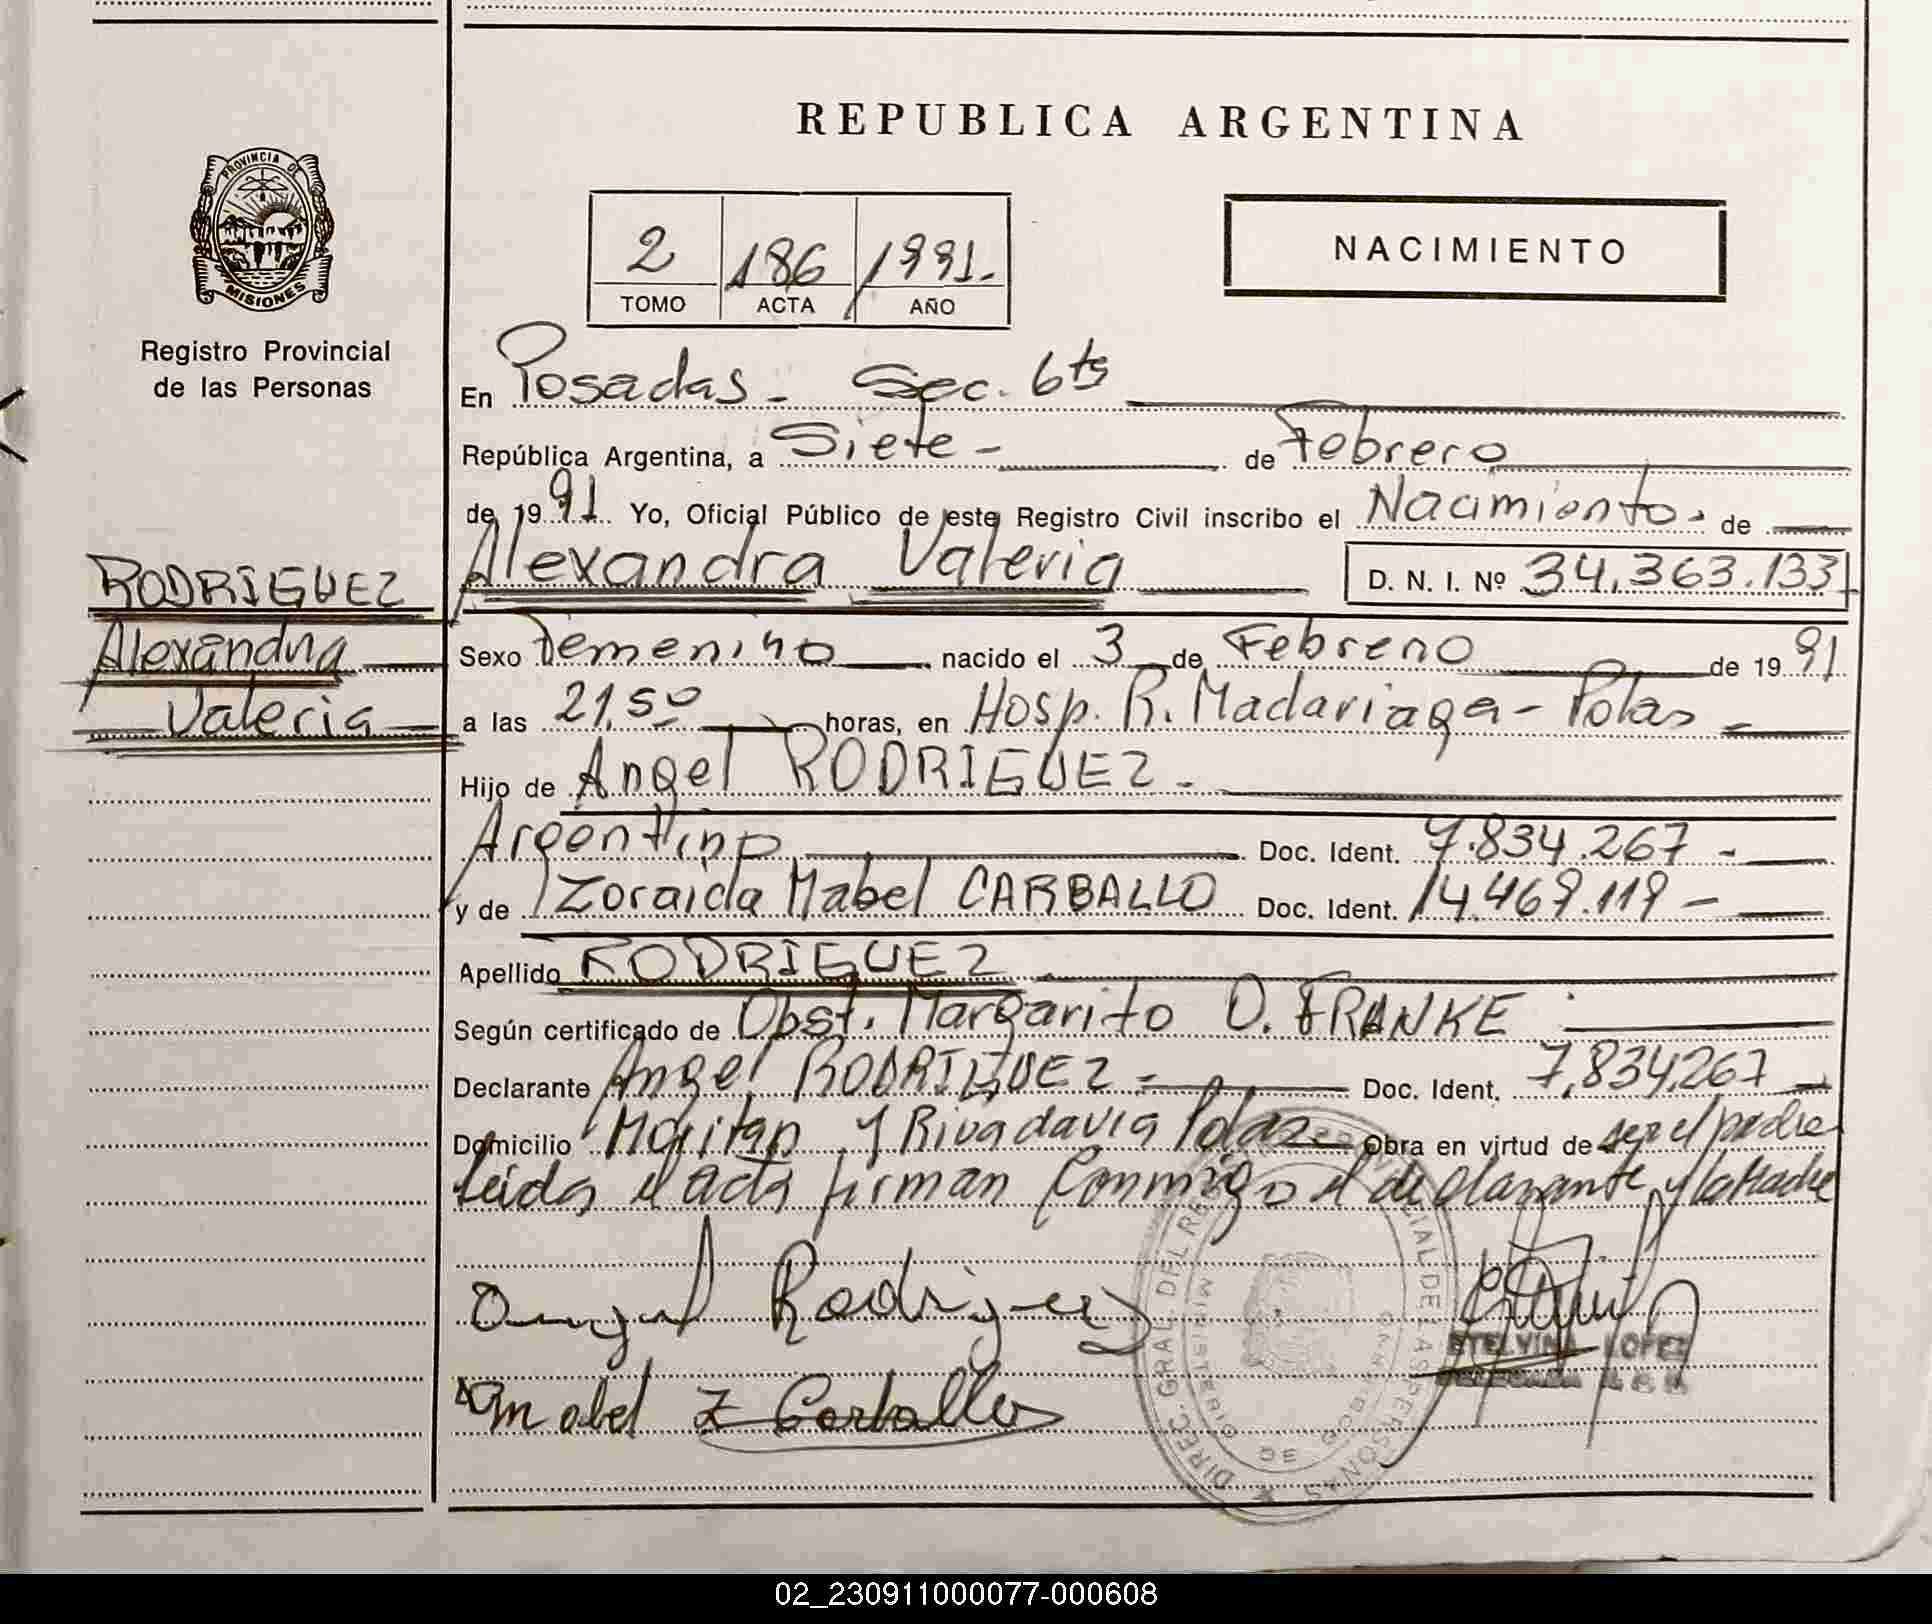 REPUBLICA ARGENTINA
PROVINCIA DE
MISIONES
Registro Provincial
de las Personas
2 186 1991-
TOMO ACTA AÑO
NACIMIENTO
En Posadas - Sec. 6ta
República Argentina, a Siete - de Febrero
de 1991 Yo, Oficial Público de este Registro Civil inscribo el Nacimiento. de
Alexandra Valeria D. N. I. Nº 34.363.133
RODRIGUEZ
Alexandra
Valeria
Sexo Femenino nacido el 3 de Febrero de 1991
a las 21,50 horas, en Hosp. R. Madariaga - Pdas -
Hijo de Angel RODRIGUEZ -
Argentino Doc. Ident. 7.834.267 -
y de Zoraida Mabel CARBALLO Doc. Ident. 14.469.119 -
Apellido RODRIGUEZ
Según certificado de Obst. Margarito O. FRANKE
Declarante Angel RODRIGUEZ - Doc. Ident. 7,834,267
Domicilio y Rivadavia Pdas Obra en virtud de ser el padre
leida el acta firman conmigo el declarante y la Madre
Angel Rodriguez
Mabel Z Carballo
ETELVINA LOPEZ
DIREC. GRAL. DEL REGISTRO PROVINCIAL DE LAS PERSONAS
MINISTERIO DE GOBIERNO
02_230911000077-000608